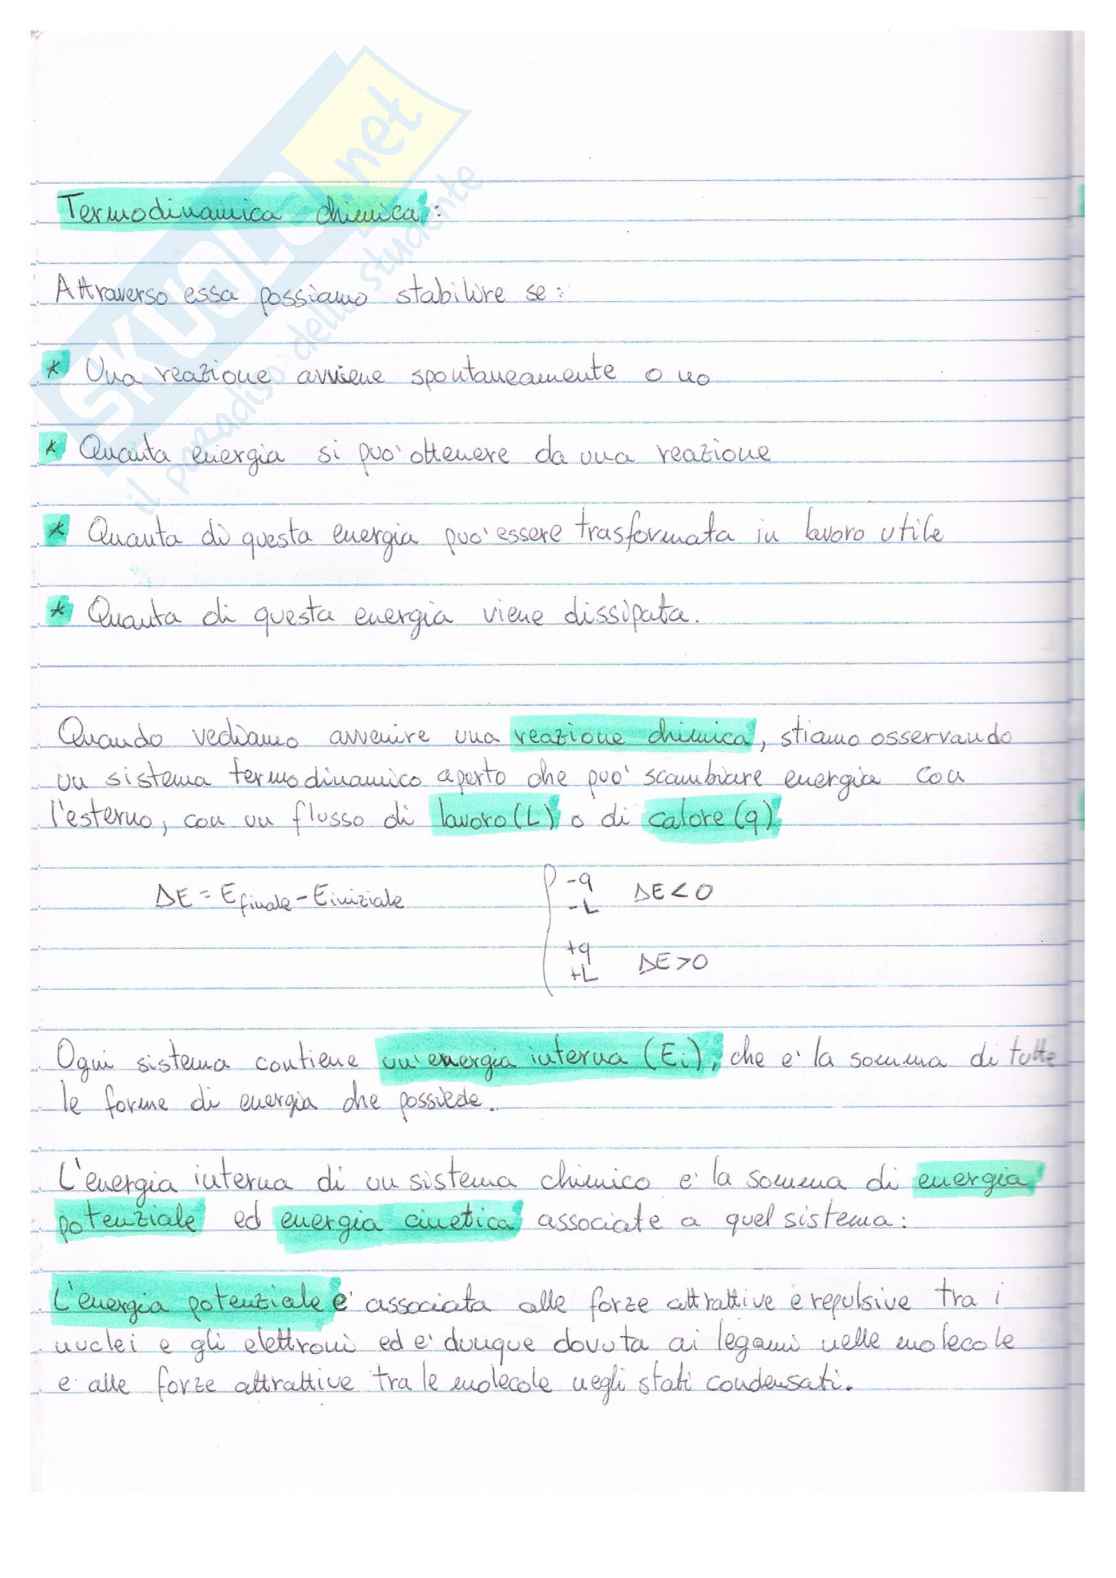 SKUOLA.net
il paradiso dello studente
Termodinamica chimica:
Attraverso essa possiamo stabilire se:
* Una reazione avviene spontaneamente o no
* Quanta energia si puo' ottenere da una reazione
* Quanta di questa energia puo' essere trasformata in lavoro utile
* Quanta di questa energia viene dissipata.
Quando vediamo avvenire una reazione chimica, stiamo osservando
un sistema termodinamico aperto che puo' scambiare energia con
l'esterno, con un flusso di lavoro (L) o di calore (q)
ΔE = Efinale - Einiziale
-q
-L ΔE < 0
+q
+L ΔE > 0
Ogni sistema contiene un'energia interna (Ei), che e' la somma di tutte
le forme di energia che possiede.
L'energia interna di un sistema chimico e' la somma di energia
potenziale ed energia cinetica associate a quel sistema:
L'energia potenziale e' associata alle forze attrattive e repulsive tra i
nuclei e gli elettroni ed e' dunque dovuta ai legami nelle molecole
e alle forze attrattive tra le molecole negli stati condensati.